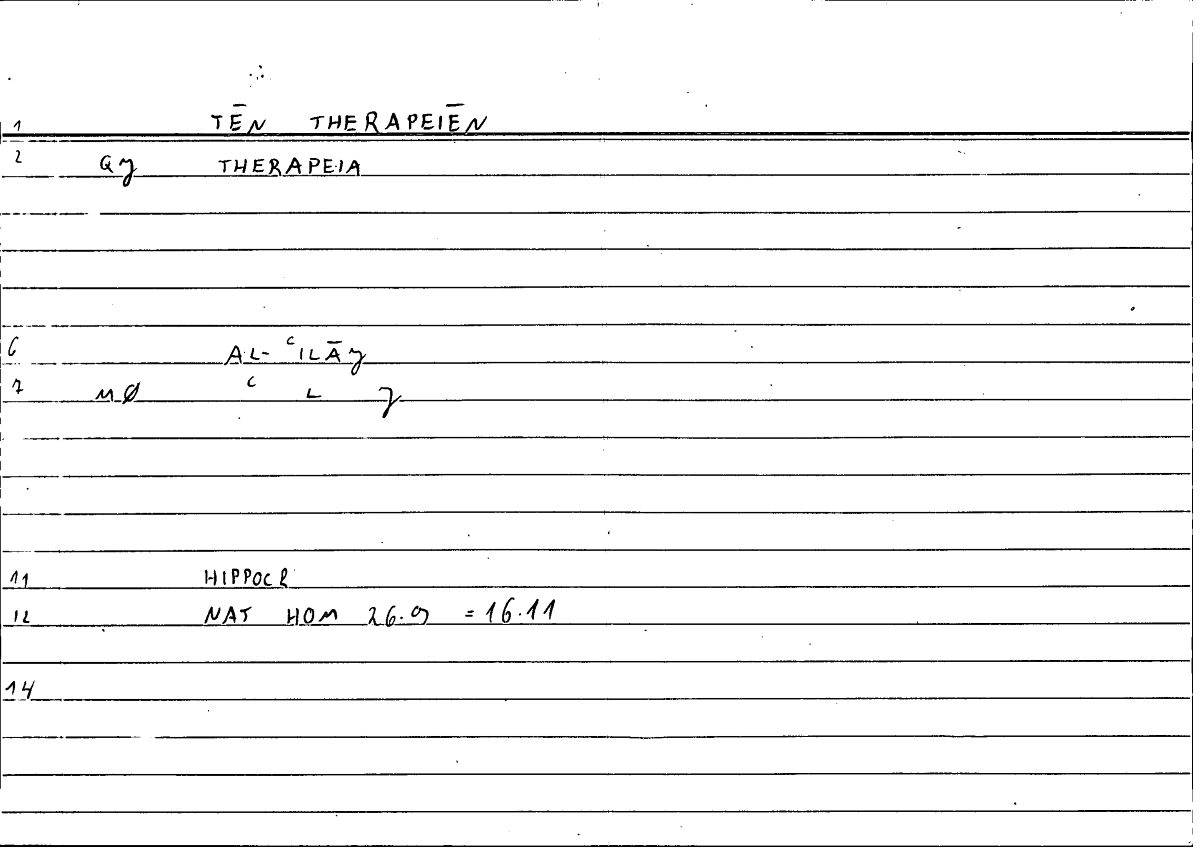 1 TĒN THERAPEIĒN
2 Gʒ THERAPEIA
6 AL-ʿILĀʒ
7 MØ ʿ L ʒ
11 HIPPOCR
12 NAT HOM 26.9 = 16.11
14